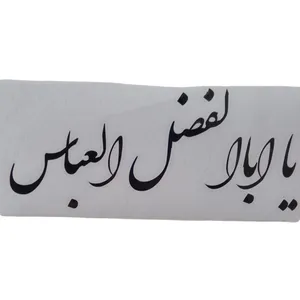 یا اباالفضل العباس